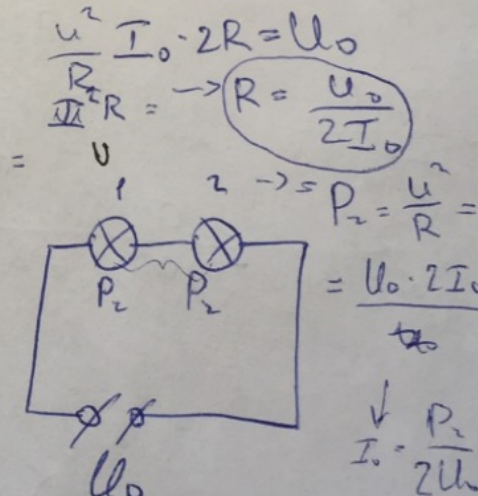 u²/R I₀ · 2R = U₀
I²R = → R = U₀/2I₀
= U
1 2 → = P₂ = u²/R =
P₂ P₂ = U₀ · 2I₀
↓
I₀ = P₂/2U₀
U₀